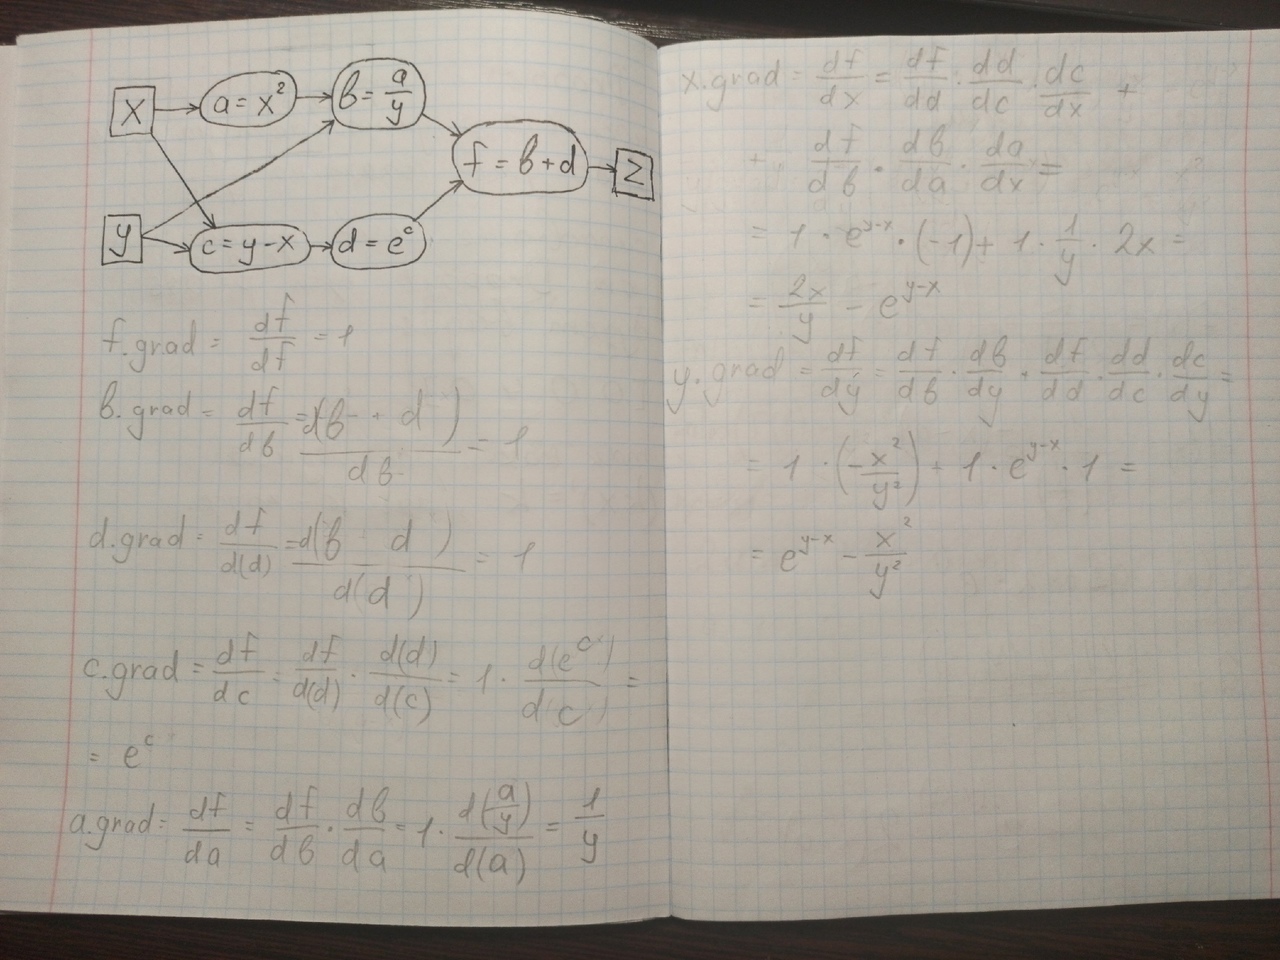 x
a = x²
b = a/y
f = b + d
z
y
c = y - x
d = e^c
f.grad = df/df = 1
b.grad = df/db = d(b + d)/db = 1
d.grad = df/d(d) = d(b d)/d(d) = 1
c.grad = df/dc = df/d(d) · d(d)/d(c) = 1 · d(e^c)/d(c) =
= e^c
a.grad = df/da = df/db · db/da = 1 · d(a/y)/d(a) = 1/y
x.grad = df/dx = df/dd · dd/dc · dc/dx +
+ df/db · db/da · da/dx =
= 1 · e^(y-x) · (-1) + 1 · 1/y · 2x =
= 2x/y - e^(y-x)
y.grad = df/dy = df/db · db/dy + df/dd · dd/dc · dc/dy =
= 1 · (-x²/y²) + 1 · e^(y-x) · 1 =
= e^(y-x) - x²/y²